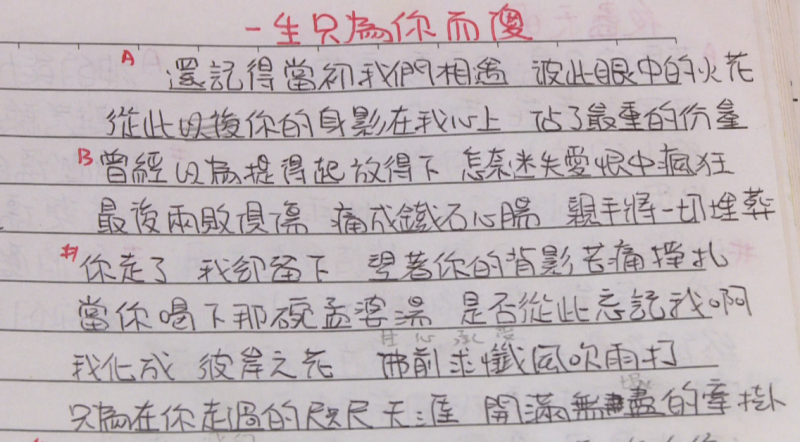 一生只為你而傻
A 還記得當初我們相遇 彼此眼中的火花
從此以後你的身影在我心上 佔了最重的份量
B 曾經以為提得起放得下 怎奈迷失愛恨中瘋狂
最後兩敗俱傷 痛成鐵石心腸 親手將一切埋葬
# 你走了 我卻留下 望著你的背影苦痛掙扎
當你喝下那碗孟婆湯 是否從此忘記我啊
甘心承受
我化成 彼岸之花 佛前求懺風吹雨打
只為在你走過的咫尺天涯 開滿無盡的牽掛